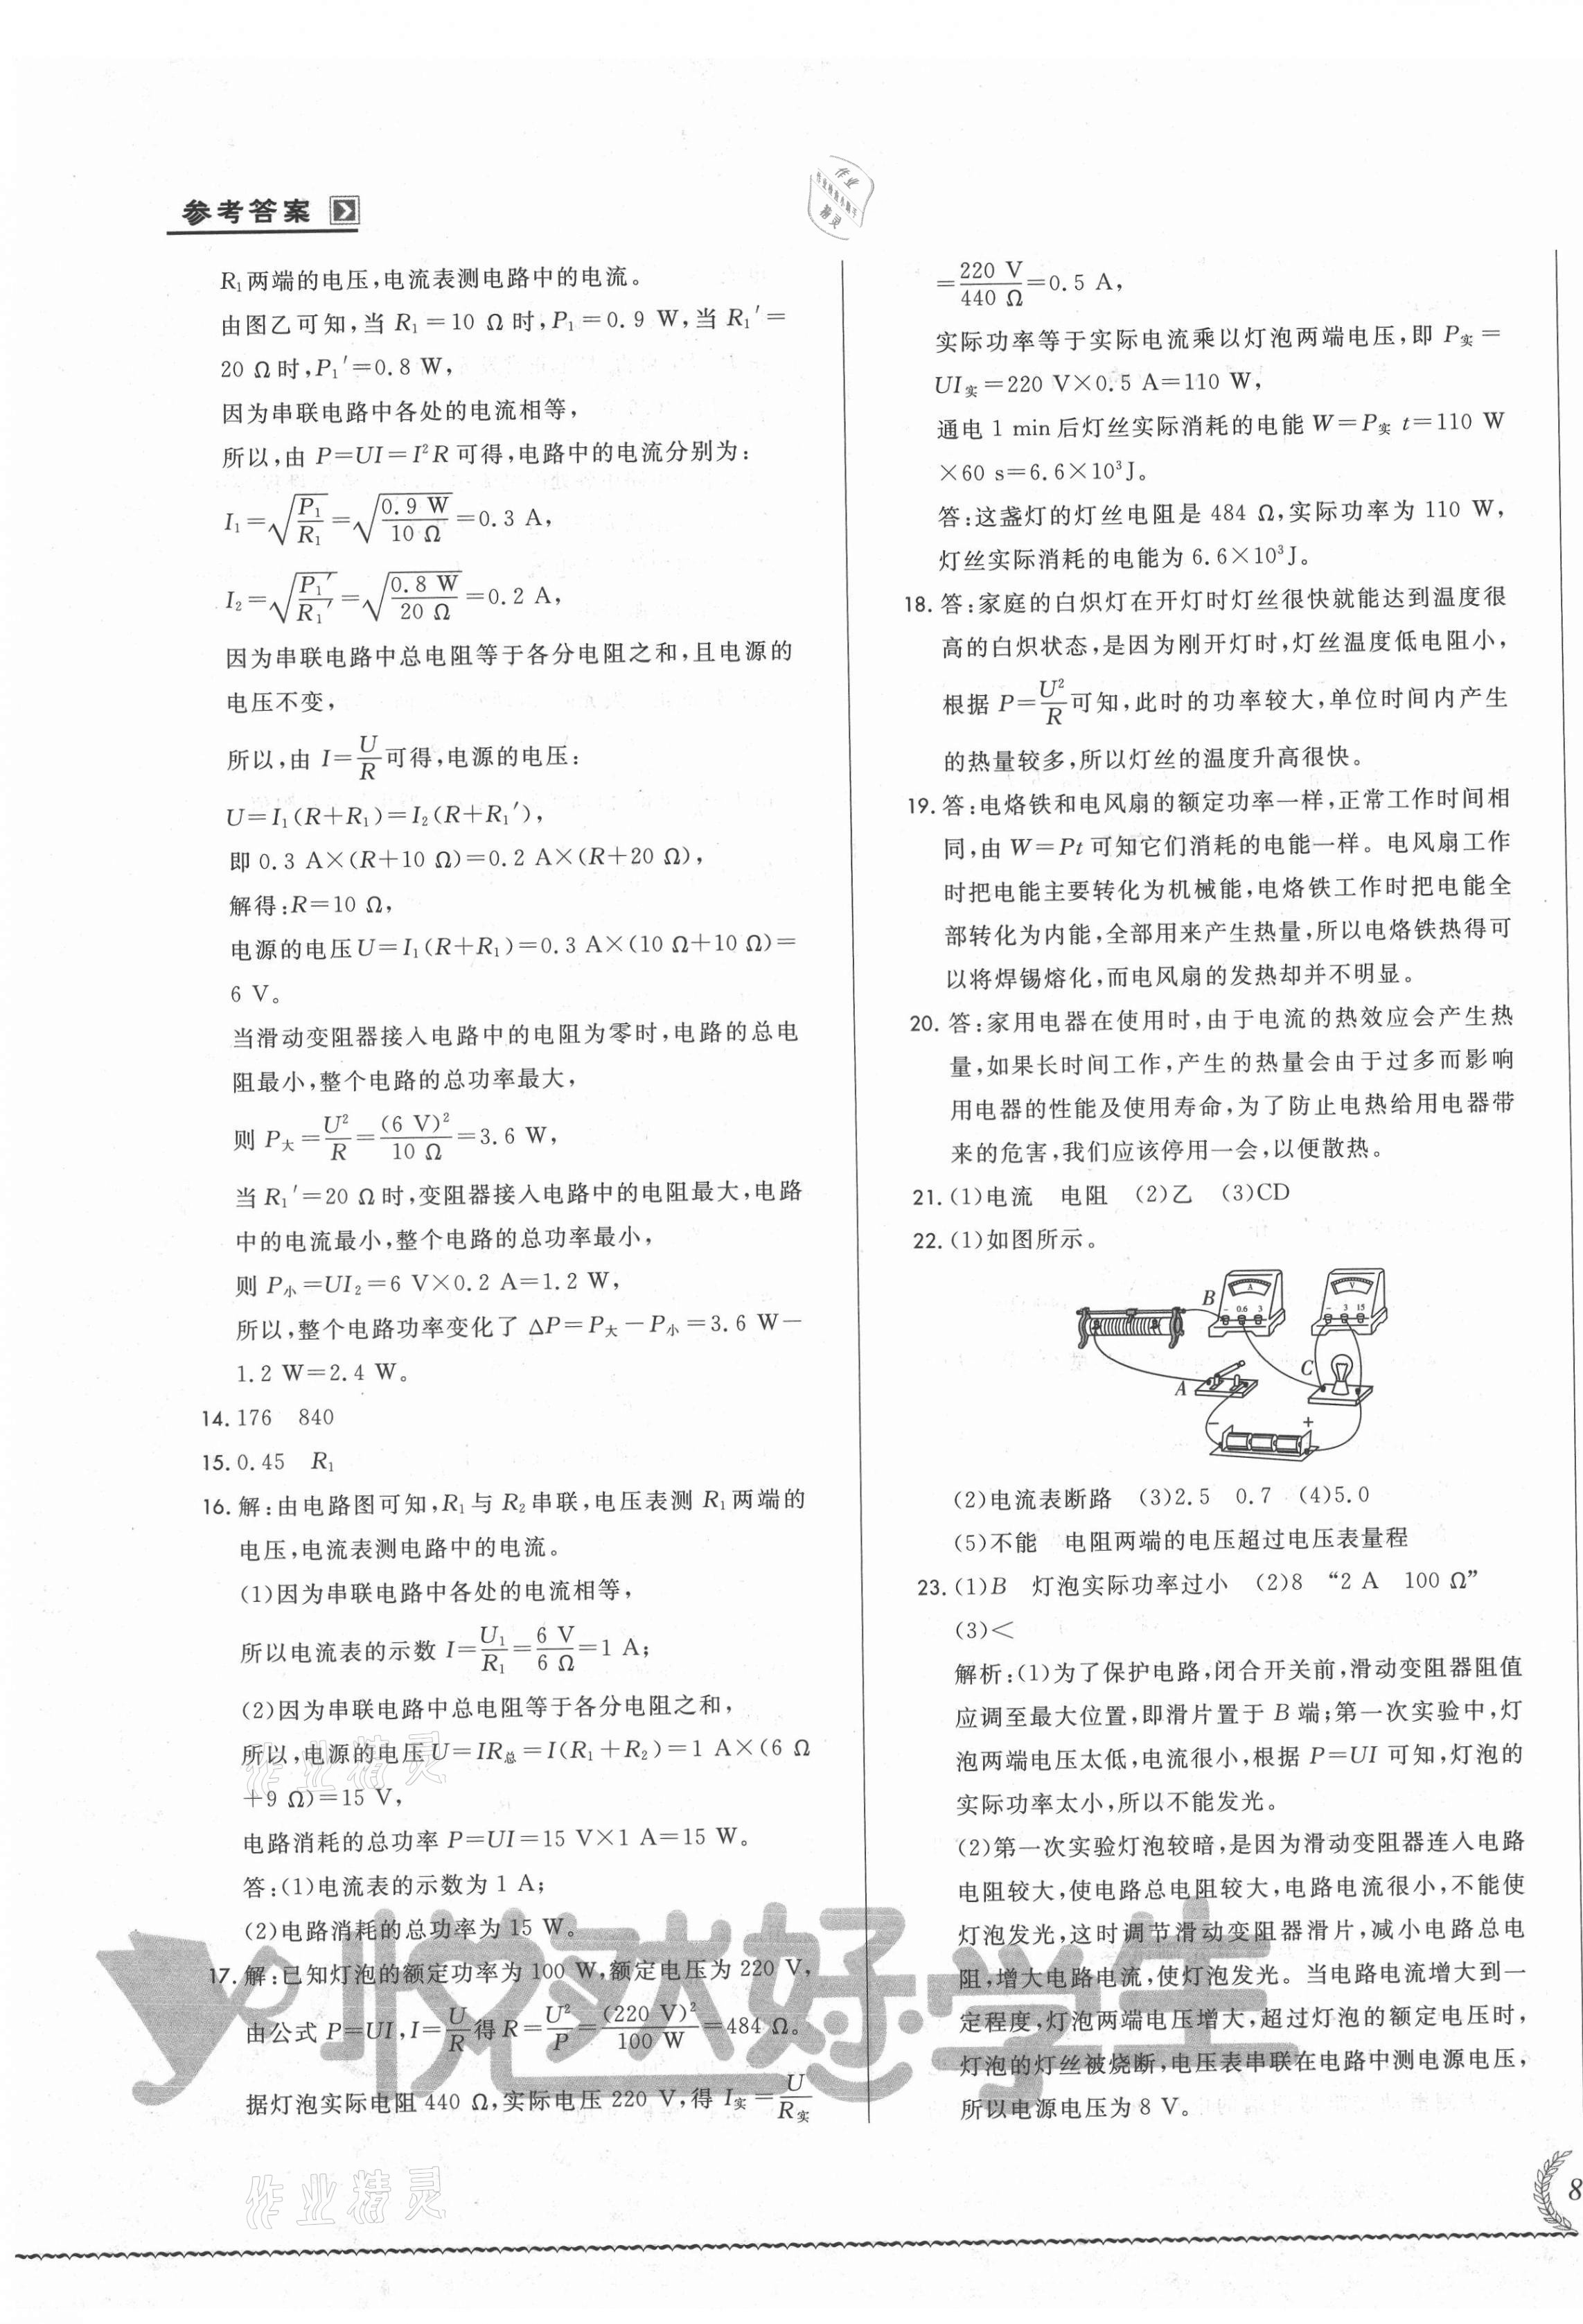 参考答案
R₁两端的电压,电流表测电路中的电流。
由图乙可知,当 R₁=10 Ω时,P₁=0.9 W,当 R₁′=
20 Ω时,P₁′=0.8 W,
因为串联电路中各处的电流相等,
所以,由 P=UI=I²R可得,电路中的电流分别为:
I₁=√(P₁/R₁)=√(0.9 W/10 Ω)=0.3 A,
I₂=√(P₁′/R₁′)=√(0.8 W/20 Ω)=0.2 A,
因为串联电路中总电阻等于各分电阻之和,且电源的
电压不变,
所以,由 I=U/R可得,电源的电压:
U=I₁(R+R₁)=I₂(R+R₁′),
即 0.3 A×(R+10 Ω)=0.2 A×(R+20 Ω),
解得:R=10 Ω,
电源的电压U=I₁(R+R₁)=0.3 A×(10 Ω+10 Ω)=
6 V。
当滑动变阻器接入电路中的电阻为零时,电路的总电
阻最小,整个电路的总功率最大,
则 P大=U²/R=(6 V)²/10 Ω=3.6 W,
当 R₁′=20 Ω时,变阻器接入电路中的电阻最大,电路
中的电流最小,整个电路的总功率最小,
则 P小=UI₂=6 V×0.2 A=1.2 W,
所以,整个电路功率变化了 ΔP=P大-P小=3.6 W-
1.2 W=2.4 W。
14. 176 840
15. 0.45 R₁
16. 解:由电路图可知,R₁与 R₂串联,电压表测 R₁两端的
电压,电流表测电路中的电流。
(1)因为串联电路中各处的电流相等,
所以电流表的示数 I=U₁/R₁=6 V/6 Ω=1 A;
(2)因为串联电路中总电阻等于各分电阻之和,
所以,电源的电压U=IR总=I(R₁+R₂)=1 A×(6 Ω
+9 Ω)=15 V,
电路消耗的总功率 P=UI=15 V×1 A=15 W。
答:(1)电流表的示数为 1 A;
(2)电路消耗的总功率为 15 W。
17. 解:已知灯泡的额定功率为 100 W,额定电压为 220 V,
由公式 P=UI,I=U/R得 R=U²/P=(220 V)²/100 W=484 Ω。
据灯泡实际电阻 440 Ω,实际电压 220 V,得 I实=U/R实
=220 V/440 Ω=0.5 A,
实际功率等于实际电流乘以灯泡两端电压,即 P实=
UI实=220 V×0.5 A=110 W,
通电 1 min后灯丝实际消耗的电能 W=P实 t=110 W
×60 s=6.6×10³J。
答:这盏灯的灯丝电阻是 484 Ω,实际功率为 110 W,
灯丝实际消耗的电能为 6.6×10³J。
18. 答:家庭的白炽灯在开灯时灯丝很快就能达到温度很
高的白炽状态,是因为刚开灯时,灯丝温度低电阻小,
根据 P=U²/R可知,此时的功率较大,单位时间内产生
的热量较多,所以灯丝的温度升高很快。
19. 答:电烙铁和电风扇的额定功率一样,正常工作时间相
同,由 W=Pt 可知它们消耗的电能一样。电风扇工作
时把电能主要转化为机械能,电烙铁工作时把电能全
部转化为内能,全部用来产生热量,所以电烙铁热得可
以将焊锡熔化,而电风扇的发热却并不明显。
20. 答:家用电器在使用时,由于电流的热效应会产生热
量,如果长时间工作,产生的热量会由于过多而影响
用电器的性能及使用寿命,为了防止电热给用电器带
来的危害,我们应该停用一会,以便散热。
21. (1)电流 电阻 (2)乙 (3)CD
22. (1)如图所示。
B A V
- 0.6 3 - 3 15
A C
- +
(2)电流表断路 (3)2.5 0.7 (4)5.0
(5)不能 电阻两端的电压超过电压表量程
23. (1)B 灯泡实际功率过小 (2)8 “2 A 100 Ω”
(3)<
解析:(1)为了保护电路,闭合开关前,滑动变阻器阻值
应调至最大位置,即滑片置于 B 端;第一次实验中,灯
泡两端电压太低,电流很小,根据 P=UI 可知,灯泡的
实际功率太小,所以不能发光。
(2)第一次实验灯泡较暗,是因为滑动变阻器连入电路
电阻较大,使电路总电阻较大,电路电流很小,不能使
灯泡发光,这时调节滑动变阻器滑片,减小电路总电
阻,增大电路电流,使灯泡发光。当电路电流增大到一
定程度,灯泡两端电压增大,超过灯泡的额定电压时,
灯泡的灯丝被烧断,电压表串联在电路中测电源电压,
所以电源电压为 8 V。
悦然好学生
作业精灵
作业精灵
作业
精灵
8